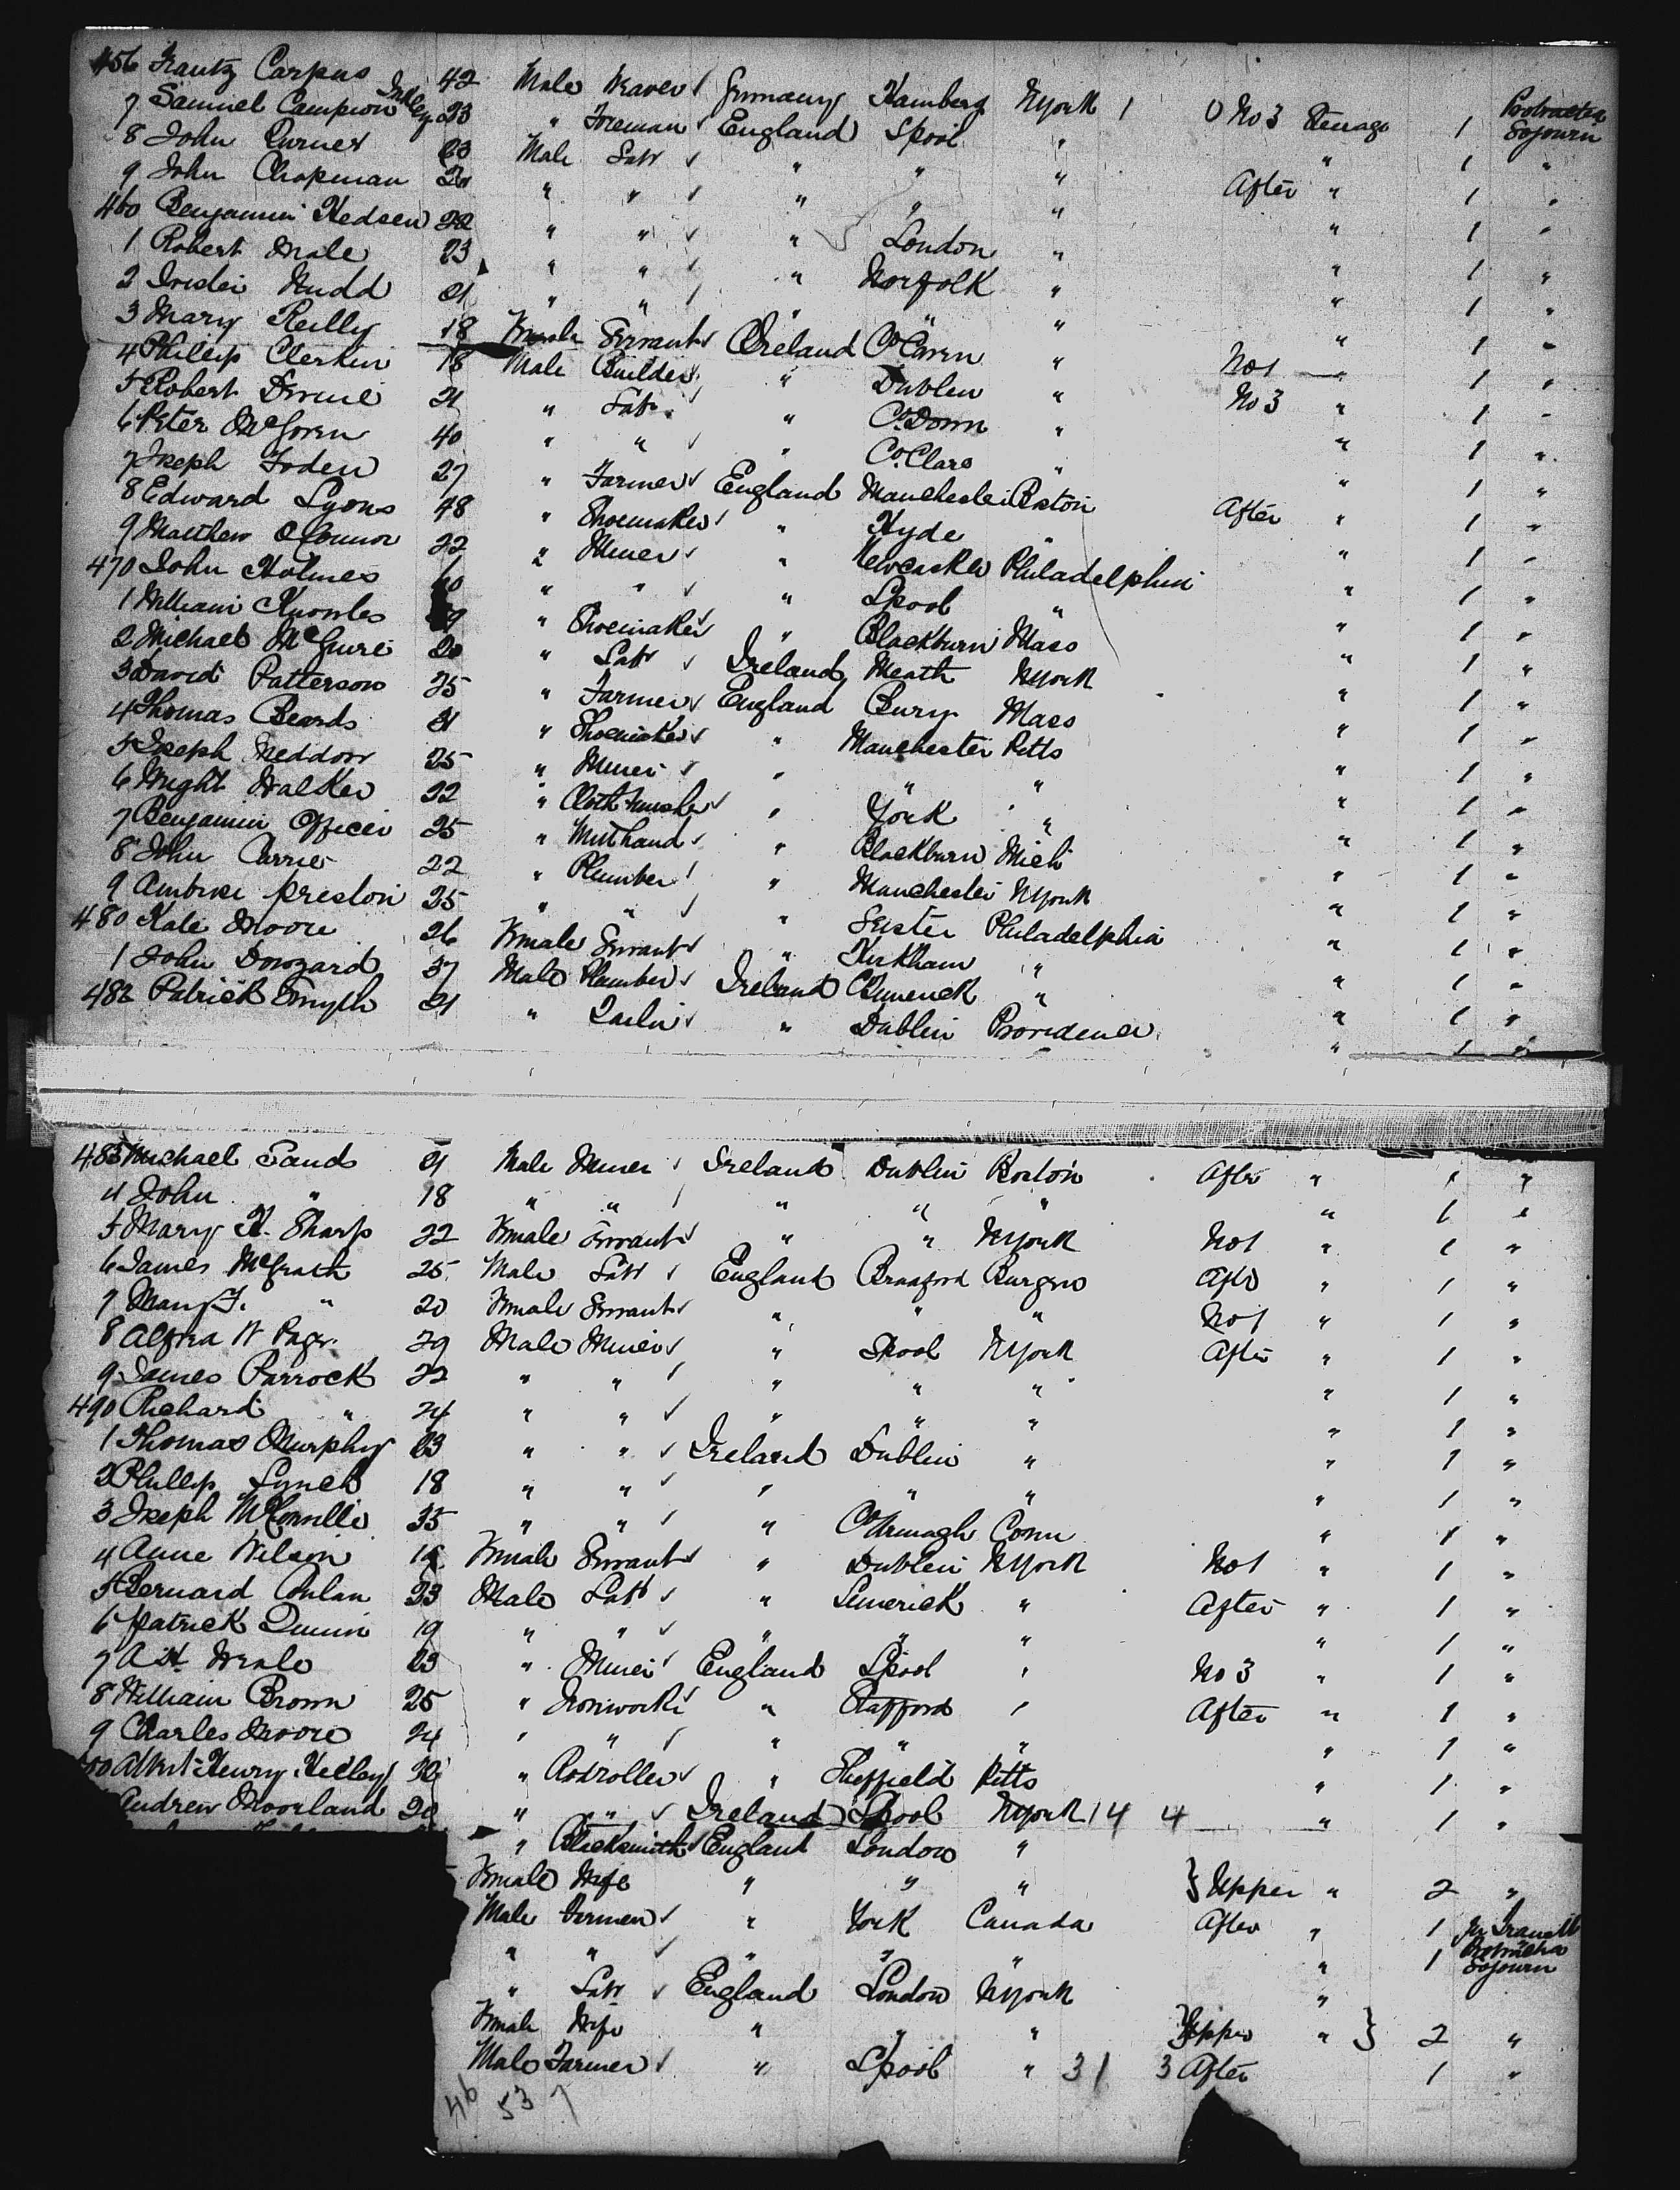 456 Frantz Carpus 42 Male Weaver Germany Hamberg NYork 1 0 No 3 Steerage 1 Protracted Sojourn
7 Samuel Campion Inkley 23 " Foreman England Lpool " " 1 "
8 John Turner 23 Male Labr " " " After " 1 "
9 John Chapman 20 " " " " " " 1 "
460 Benjamin Hedsen 22 " " " London " " 1 "
1 Robert Male 23 " " " Norfolk " " 1 "
2 Nudd 21 " " " " " " 1 "
3 Mary Reilly 18 Female Servant Ireland Co Cavan " No 1 " 1 "
4 Phillip Clerkin 18 Male Builder " Dublin " No 3 " 1 "
5 Robert 21 " Labr " Co Down " " 1 "
6 Peter McGoren 40 " " " Co Clare " " 1 "
7 Joseph Foden 27 " Farmer England Manchester Boston After " 1 "
8 Edward Lyons 48 " Shoemaker " Hyde " " 1 "
9 Matthew O'Connor 22 " Miner " Newcastle Philadelphia " 1 "
470 John Holmes 40 " " " Lpool " " 1 "
1 William Knowles 39 " Shoemaker " Blackburn Mass " 1 "
2 Michael McGuire 20 " Labr Ireland Meath NYork " 1 "
3 David Patterson 25 " Farmer England Bury Mass " 1 "
4 Thomas Beards 21 " Shoemaker " Manchester Pitts " 1 "
5 Joseph Neddon 25 " Miner " " " " 1 "
6 Wright Walker 22 " Cloth finisher " York " " 1 "
7 Benjamin Officer 25 " Millhand " Blackburn Mich " 1 "
8 John Currie 22 " Plumber " Manchester NYork " 1 "
9 Ambrose Preston 25 " " " Philadelphia " 1 "
480 Kate Moore 26 Female Servant " Kirkham " " 1 "
1 John Dowzard 37 Male Plumber Ireland Limerick " " 1 "
482 Patrick Smyth 21 " Tailor " Dublin Providence " 1 "
483 Michael Sands 21 Male Miner Ireland Dublin Boston After " 1 "
4 John " 18 " " " " " " 1 "
5 Mary K. Sharp 22 Female Servant " " NYork No 1 " 1 "
6 James McGrath 25 Male Labr England Bradford Burgess After " 1 "
7 Mary J. " 20 Female Servant " " " No 1 " 1 "
8 W Page 29 Male Miner " Lpool NYork After " 1 "
9 James Parrock 22 " " " " " " 1 "
490 Richard " 24 " " " " " " 1 "
1 Thomas Murphy 23 " " Ireland Dublin " " 1 "
2 Phillip Lynch 18 " " " " " " 1 "
3 Joseph McConville 35 " " " Co Armagh Conn " 1 "
4 Anne Wilson Female Servant " Dublin NYork No 1 " 1 "
5 Bernard Conlan 23 Male Labr " Limerick " After " 1 "
6 Patrick Quinn 19 " " " " " " 1 "
7 Weale 23 " Miner England Lpool " No 3 " 1 "
8 William Brown 25 " Ironworker " Stafford " After " 1 "
9 Charles Moore 24 " " " " " " 1 "
00 Albert Henry Kelley 32 " Rodroller " Sheffield Pitts " 1 "
Andrew Moorland 20 " " Ireland Lpool NYork 14 4 " 1 "
" Blacksmith England London "
Female Wife " " " } Upper " 2 "
Male Farmer " York Canada After " 1 In Transitu
" " " " " " 1 Protracted Sojourn
" Labr England London NYork "
Female Wife " " " } Upper " } 2 "
Male Farmer " Lpool " 31 3 After 1 "
46 53 7